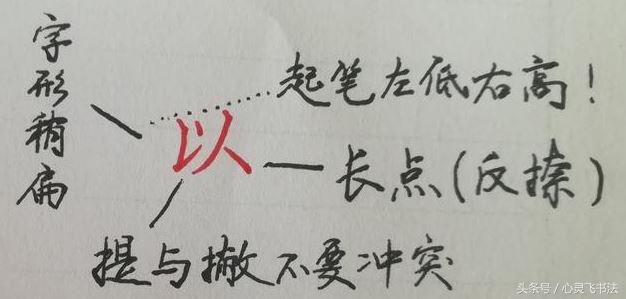 字形稍扁
起笔左低右高！
以
长点（反捺）
提与撇不要冲突
头条号／心灵飞书法